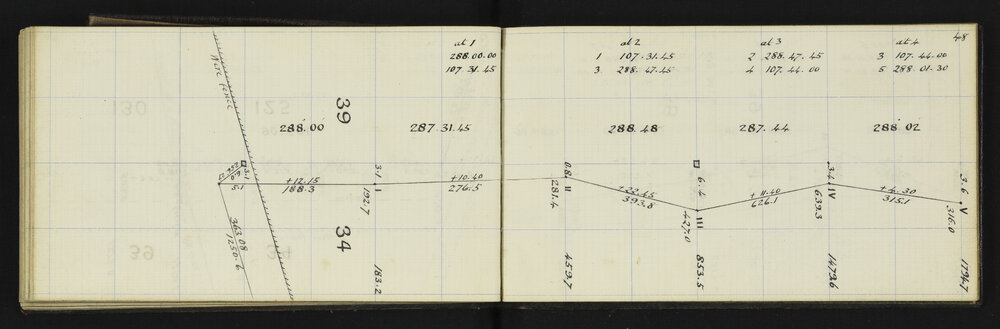 48
at 1
288.00.00
107.31.45
at 2
1 107.31.45
3 288.47.45
at 3
2 288.47.45
4 107.44.00
at 4
3 107.44.00
5 288.01.30
Wire Fence
39
288.00
287.31.45
288.48
287.44
288.02
3.1
5.1
+12.15
188.3
3.1
I
192.7
+10.40
276.5
0.8
II
281.4
+22.45
393.8
6.4
III
427.0
+11.40
626.1
3.4
IV
639.3
+4.30
315.1
3.6
V
316.0
363.08
1250.6
34
183.2
459.7
853.5
1479.6
1794.7